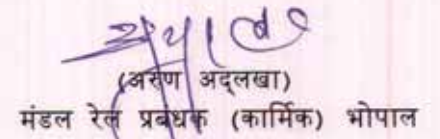 (अरुण अद्लखा)
मंडल रेल प्रबंधक (कार्मिक) भोपाल